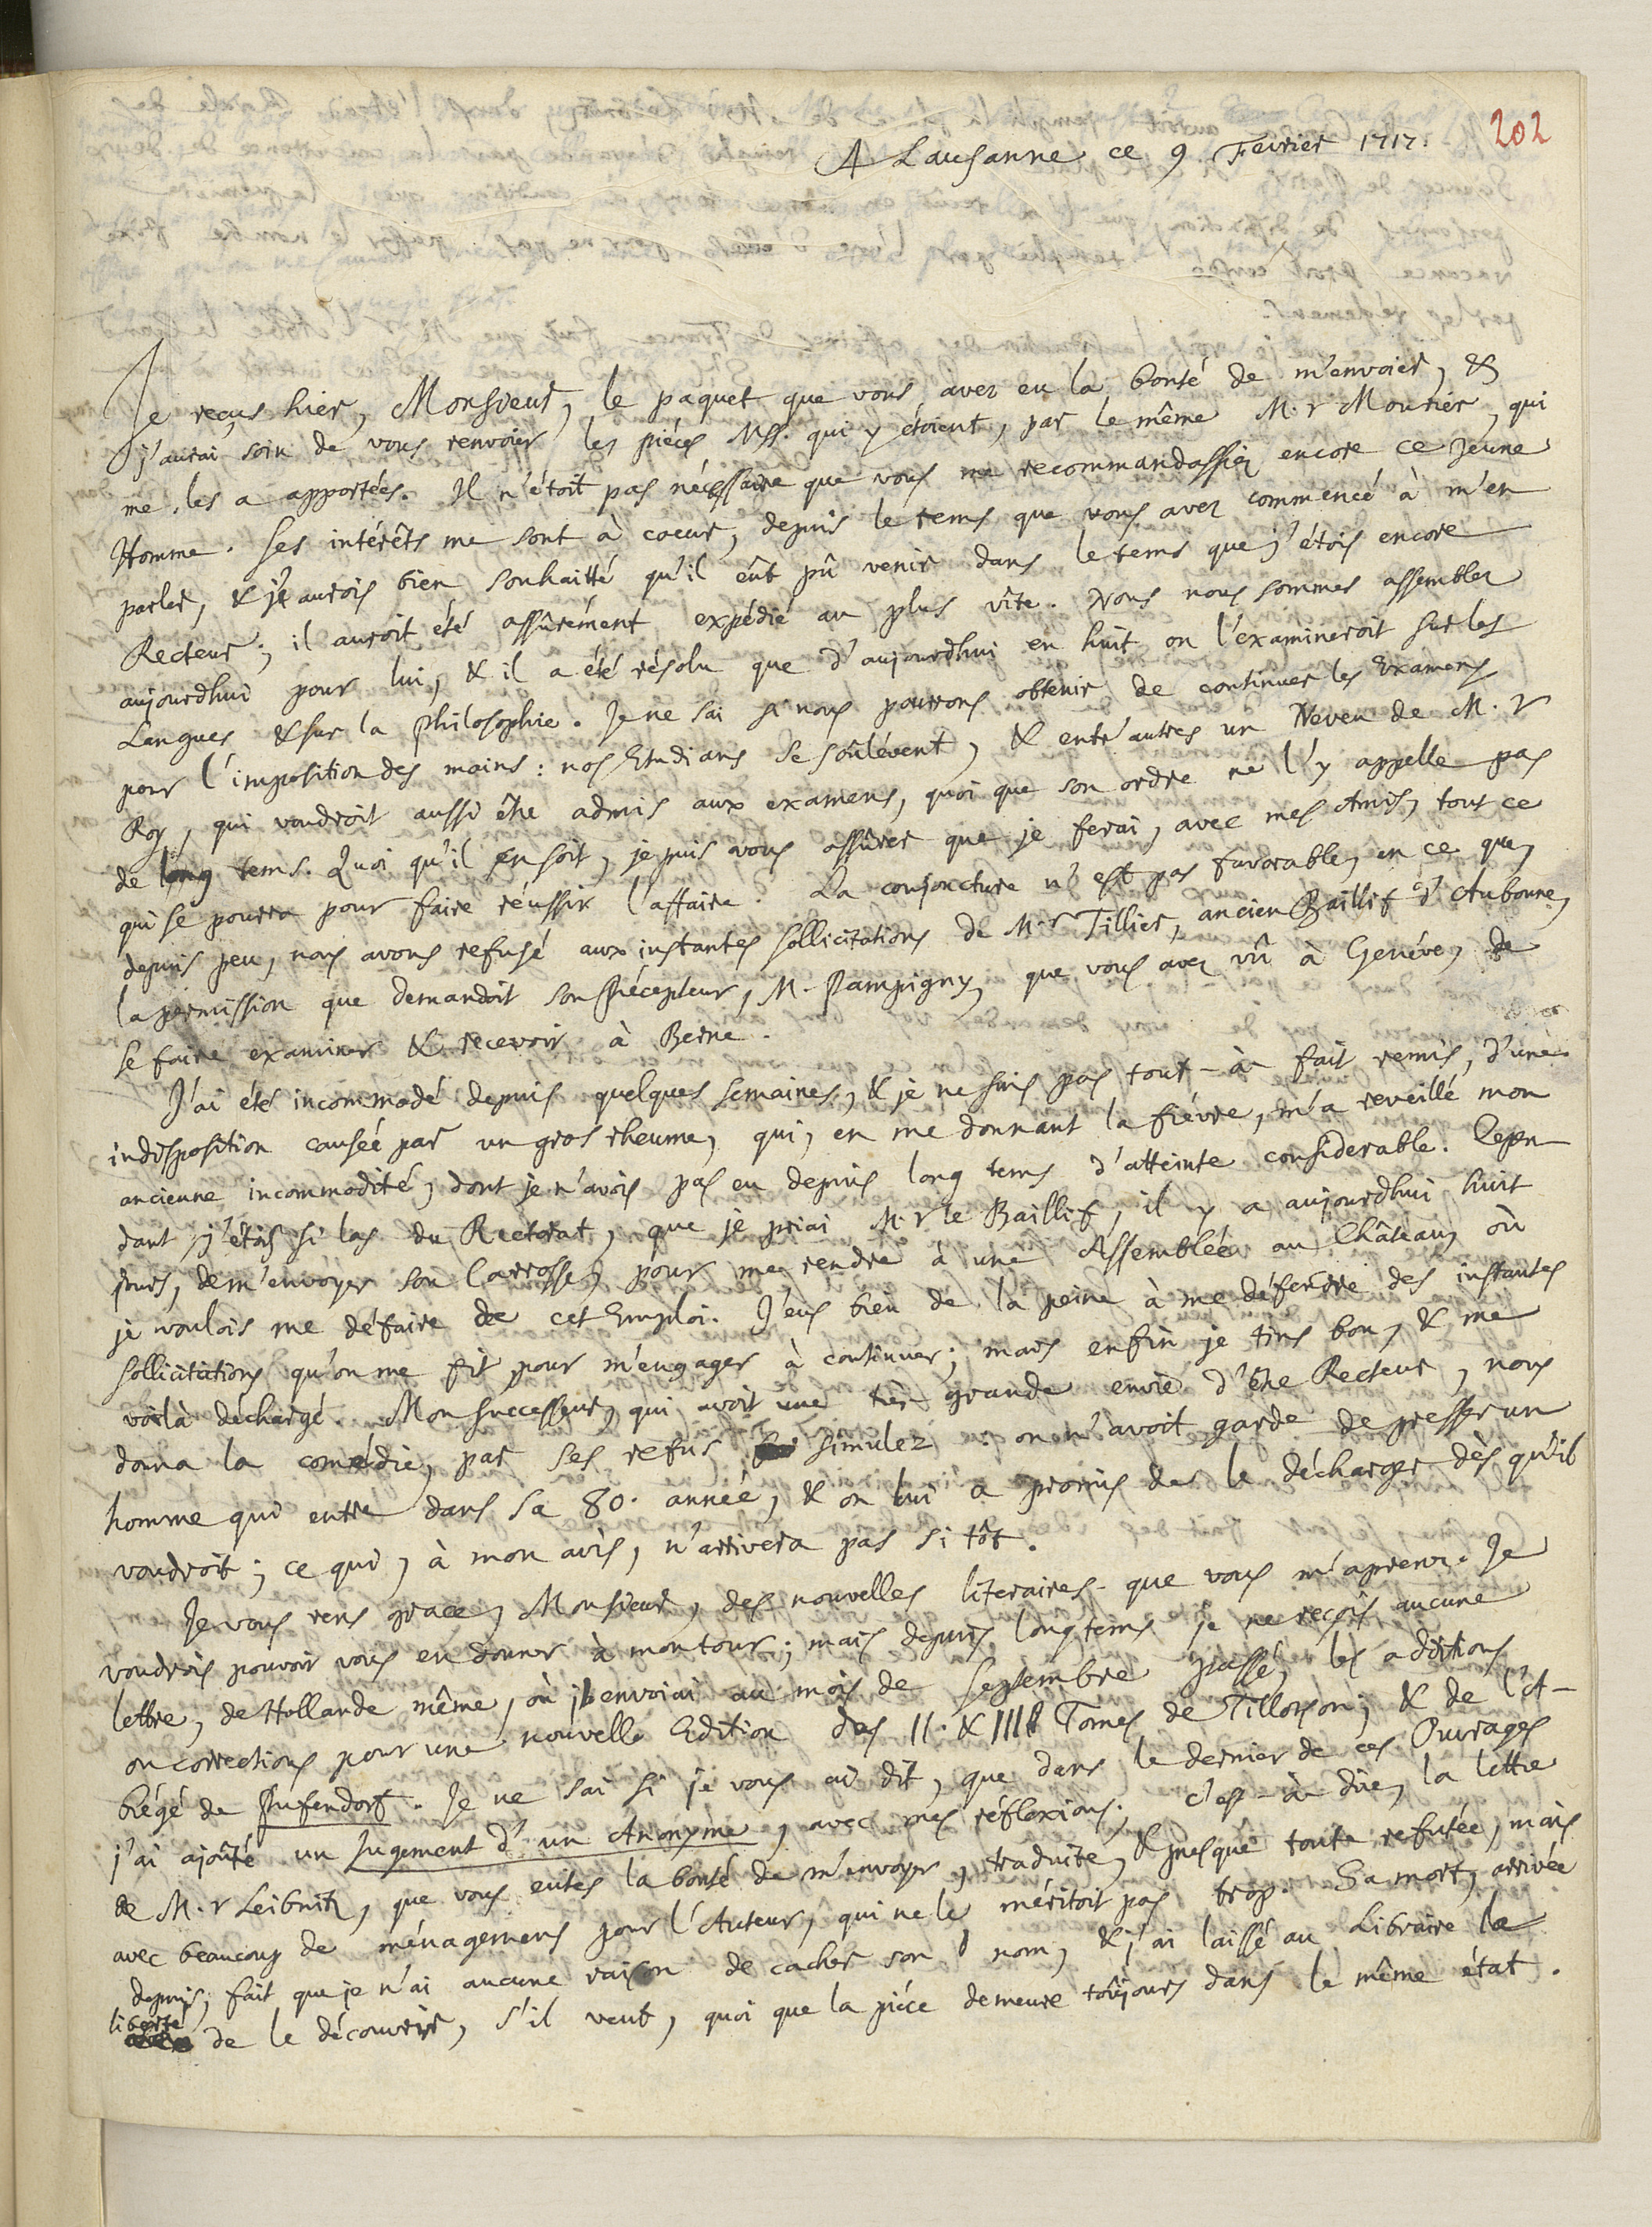 202
A Lausanne ce 9. Fevrier 1717.
Je reçus hier, Monsieur, le paquet que vous avez eu la bonté de m'envoier, &
j'aurai soin de vous renvoier les piéces Mss. qui y étoient, par le même M.r Mourier, qui
me les a apportées. Il n'étoit pas nécessaire que vous me recommandassiez encore ce jeune
Homme. Ses intérêts me sont à coeur, depuis le tems que vous avez commencé à m'en
parler, & j'aurois bien souhaitté qu'il eût pû venir dans le tems que j'étois encore
Recteur; il auroit été assûrément expédié au plus vîte. Nous nous sommes assemblez
aujourdhui pour lui, & il a été résolu que d'aujourdhui en huit on l'examineroit sur les
Langues & sur la Philosophie. Je ne sai si nous pourrons obtenir de continuer les Examens
pour l'imposition des mains: nos Etudians se soûlévent, & entr'autres un Neveu de M.r
Roy, qui voudroit aussi être admis aux examens, quoi que son ordre ne l'y appelle pas
de long tems. Quoi qu'il en soit, je puis vous assûrer que je ferai, avec mes Amis, tout ce
qui se pourra pour faire réussir l'affaire. La conjoncture n'est pas favorable, en ce que,
depuis peu, nous avons refusé aux instantes sollicitations de M.r Tillier, ancien Baillif d'Aubonne,
la permission que demandoit son Précepteur, M. Pampigny, que vous avez vû à Genéve, de
se faire examiner & recevoir à Berne.
J'ai été incommodé depuis quelques semaines, & je ne suis pas tout-à-fait remis, d'une
indisposition causée par un gros rheume, qui, en me donnant la fiévre, m'a reveillé mon
ancienne incommodité, dont je n'avois pas eu depuis long tems d'atteinte considerable. Cepen-
dant j'étois si las du Rectorat, que je priai M.r le Baillif, il y a aujourdhui huit
jours, de m'envoyer son Carrosse, pour me rendre à une Assemblée au Château, où
je voulois me défaire de cet Emploi. J'eus bien de la peine à me défendre des instantes
sollicitations qu'on me fit pour m'engager à continuer; mais enfin je tins bon, & me
voilà déchargé. Mon successeur, qui avoit une très-grande envie d'être Recteur, nous
donna la comédie, par ses refus simulez: on n'avoit garde de presser un
homme qui entre dans sa 80. année, & on lui a promis de le décharger dès qu'il
voudroit; ce qui, à mon avis, n'arrivera pas si tôt.
Je vous rens grace, Monsieur, des nouvelles literaires que vous m'aprenez. Je
voudrois pouvoir vous en donner à mon tour; mais depuis longtems je ne reçois aucune
lettre, de Hollande même, où j'envoiai au mois de Septembre passé, les additions
ou corrections pour une nouvelle Edition des II. & III Tomes de Tillotson; & de l'A-
brégé de Pufendorf. Je ne sai si je vous ai dit, que dans le dernier de ces Ouvrages
j'ai ajoûté un Jugement d'un Anonyme, avec mes réflexions; c'est-à-dire, la lettre
de M.r Leibnitz, que vous eutes la bonté de m'envoyer, traduite, & presque toute refutée, mais
avec beaucoup de ménagemens pour l'Auteur, qui ne le méritoit pas trop. Sa mort, arrivée
depuis, fait que je n'ai aucune raison de cacher son nom, & j'ai laissé au Libraire la
liberté de le découvrir, s'il veut, quoi que la piéce demeure toûjours dans le même état.